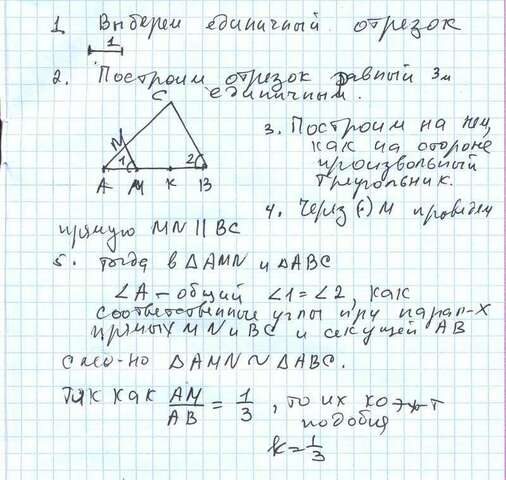 1 Выберем единичный отрезок
1
2. Построим отрезок равный 3м
единичным.
C
N
1
2
A M K B
3. Построим на нем,
как на стороне
произвольный
треугольник.
4. Через (·) M проведем
прямую MN || BC
5. тогда в ΔAMN и ΔABC
∠A – общий ∠1=∠2, как
соответственные углы при парал-х
прямых MN и BC и секущей AB
след-но ΔAMN ~ ΔABC.
Так как AM/AB = 1/3, то их коэт
подобия
k=1/3